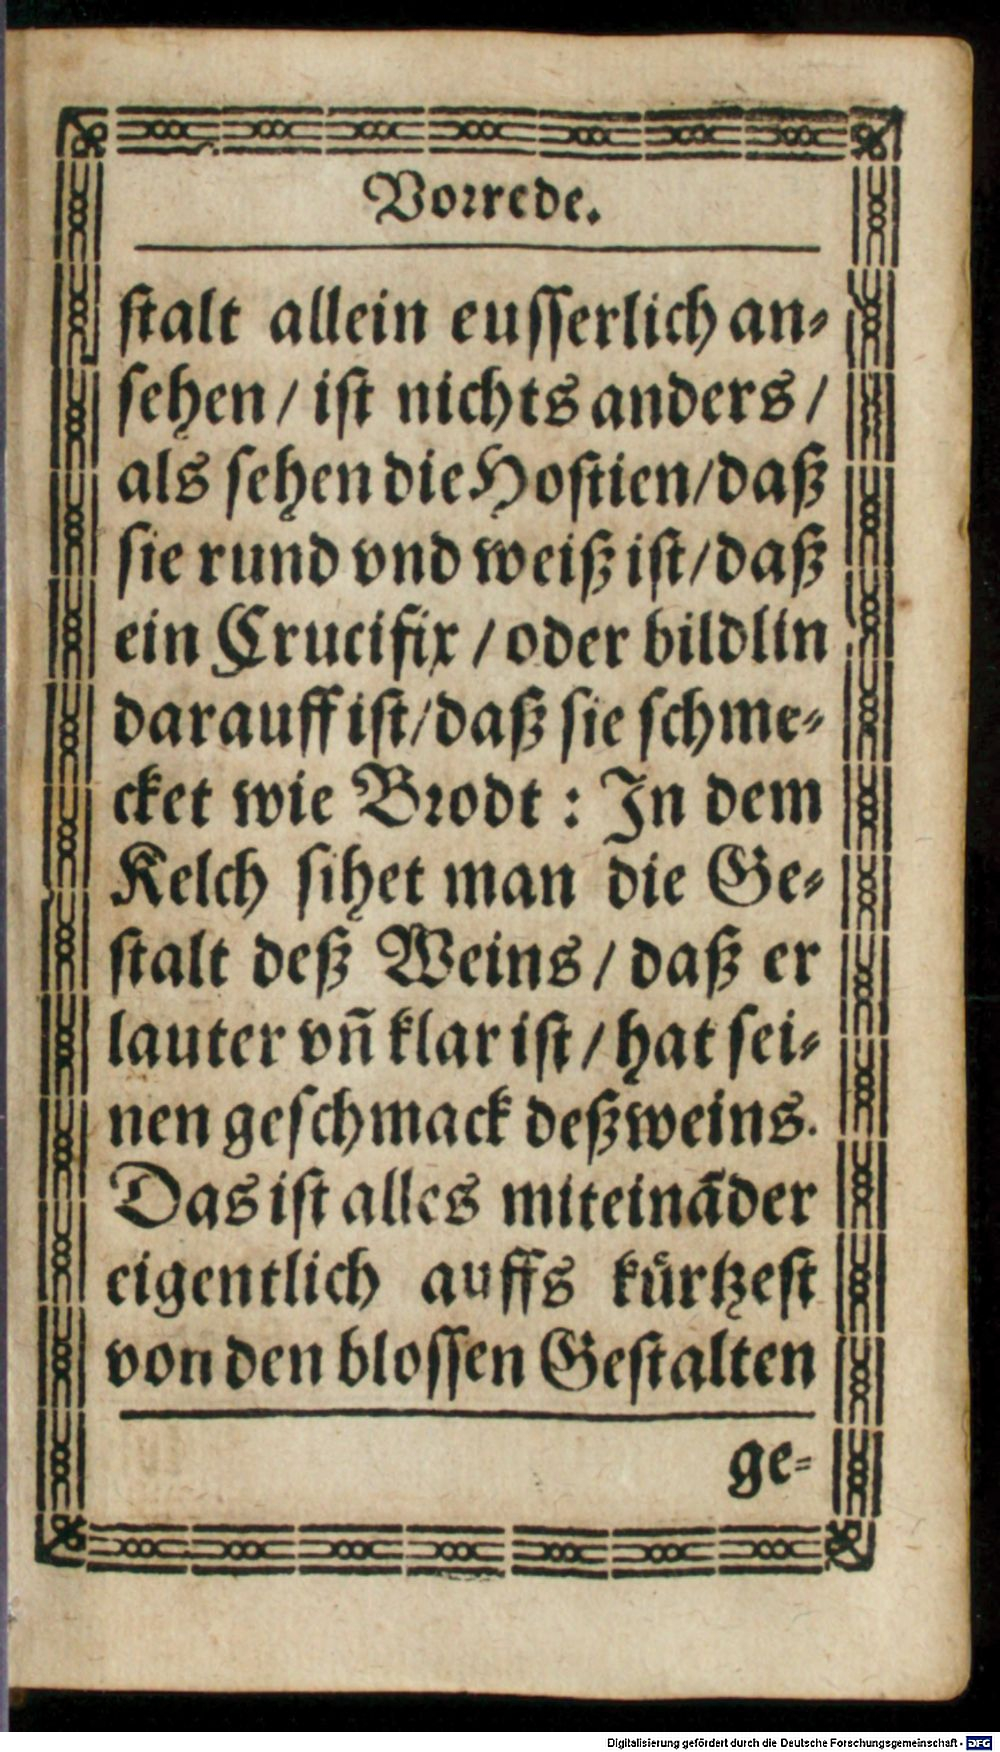 Vorrede.
stalt allein eusserlich an-
sehen / ist nichts anders /
als sehen die Hostien / daß
sie rund vnd weiß ist / daß
ein Crucifix / oder bildlin
darauff ist / daß sie schme-
cket wie Brodt : In dem
Kelch sihet man die Ge-
stalt deß Weins / daß er
lauter vñ klar ist / hat sei-
nen geschmack deß weins.
Das ist alles miteinãder
eigentlich auffs kürtzest
von den blossen Gestalten
ge-
Digitalisierung gefördert durch die Deutsche Forschungsgemeinschaft - DFG